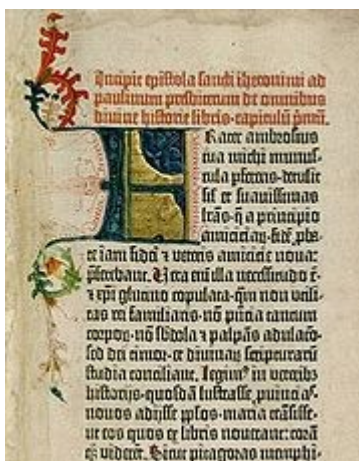 Incipit epistola sancti iheronimi ad
paulinum presbiterum de omnibus
divine historie libris·capitulū pmū.
Frater ambrosius
tua michi munus-
cula pferens·detulit
sił et suavissimas
lrās·q̄ a principio
amiciciaꝝ·fidē pba-
te iam fidei ⁊ veteris amicicie nova:
pferebant. Vera eni illa necessitudo ē·
⁊ xpi glutino copulata·qm non utili-
tas rei familiaris·nō pncia tantum
corpoꝝ·nō sbdola ⁊ palpās adulacō·
sed dei timor·et divinaꝝ scripturarū
studia conciliant. Legimꝰ in veteribꝫ
historijs·quosdā lustrasse, puincias·
novos adijsse pplos·maria trāsisse·
ut eos quos ex libris noverant: corā
qꝫ viderēt. Sicut pitagoras memphi-